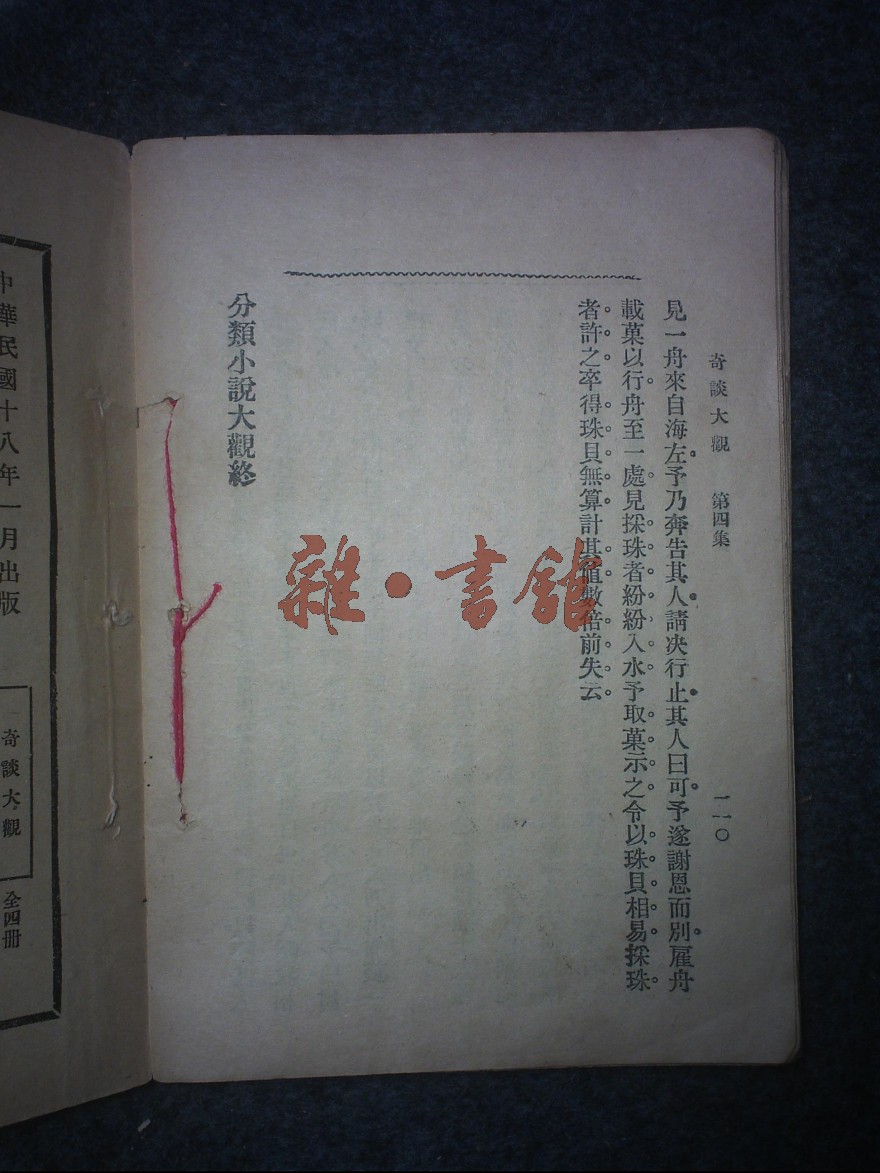 奇談大觀　第四集　一一〇
見一舟來自海左予乃奔告其人請决行止其人曰可予遂謝恩而別雇舟
載菓以行舟至一處見採珠者紛紛入水予取菓示之令以珠貝相易採珠
者許之卒得珠貝無算計其值數倍前失云
分類小說大觀終
雜·書館
奇談大觀　全四册
中華民國十八年一月出版